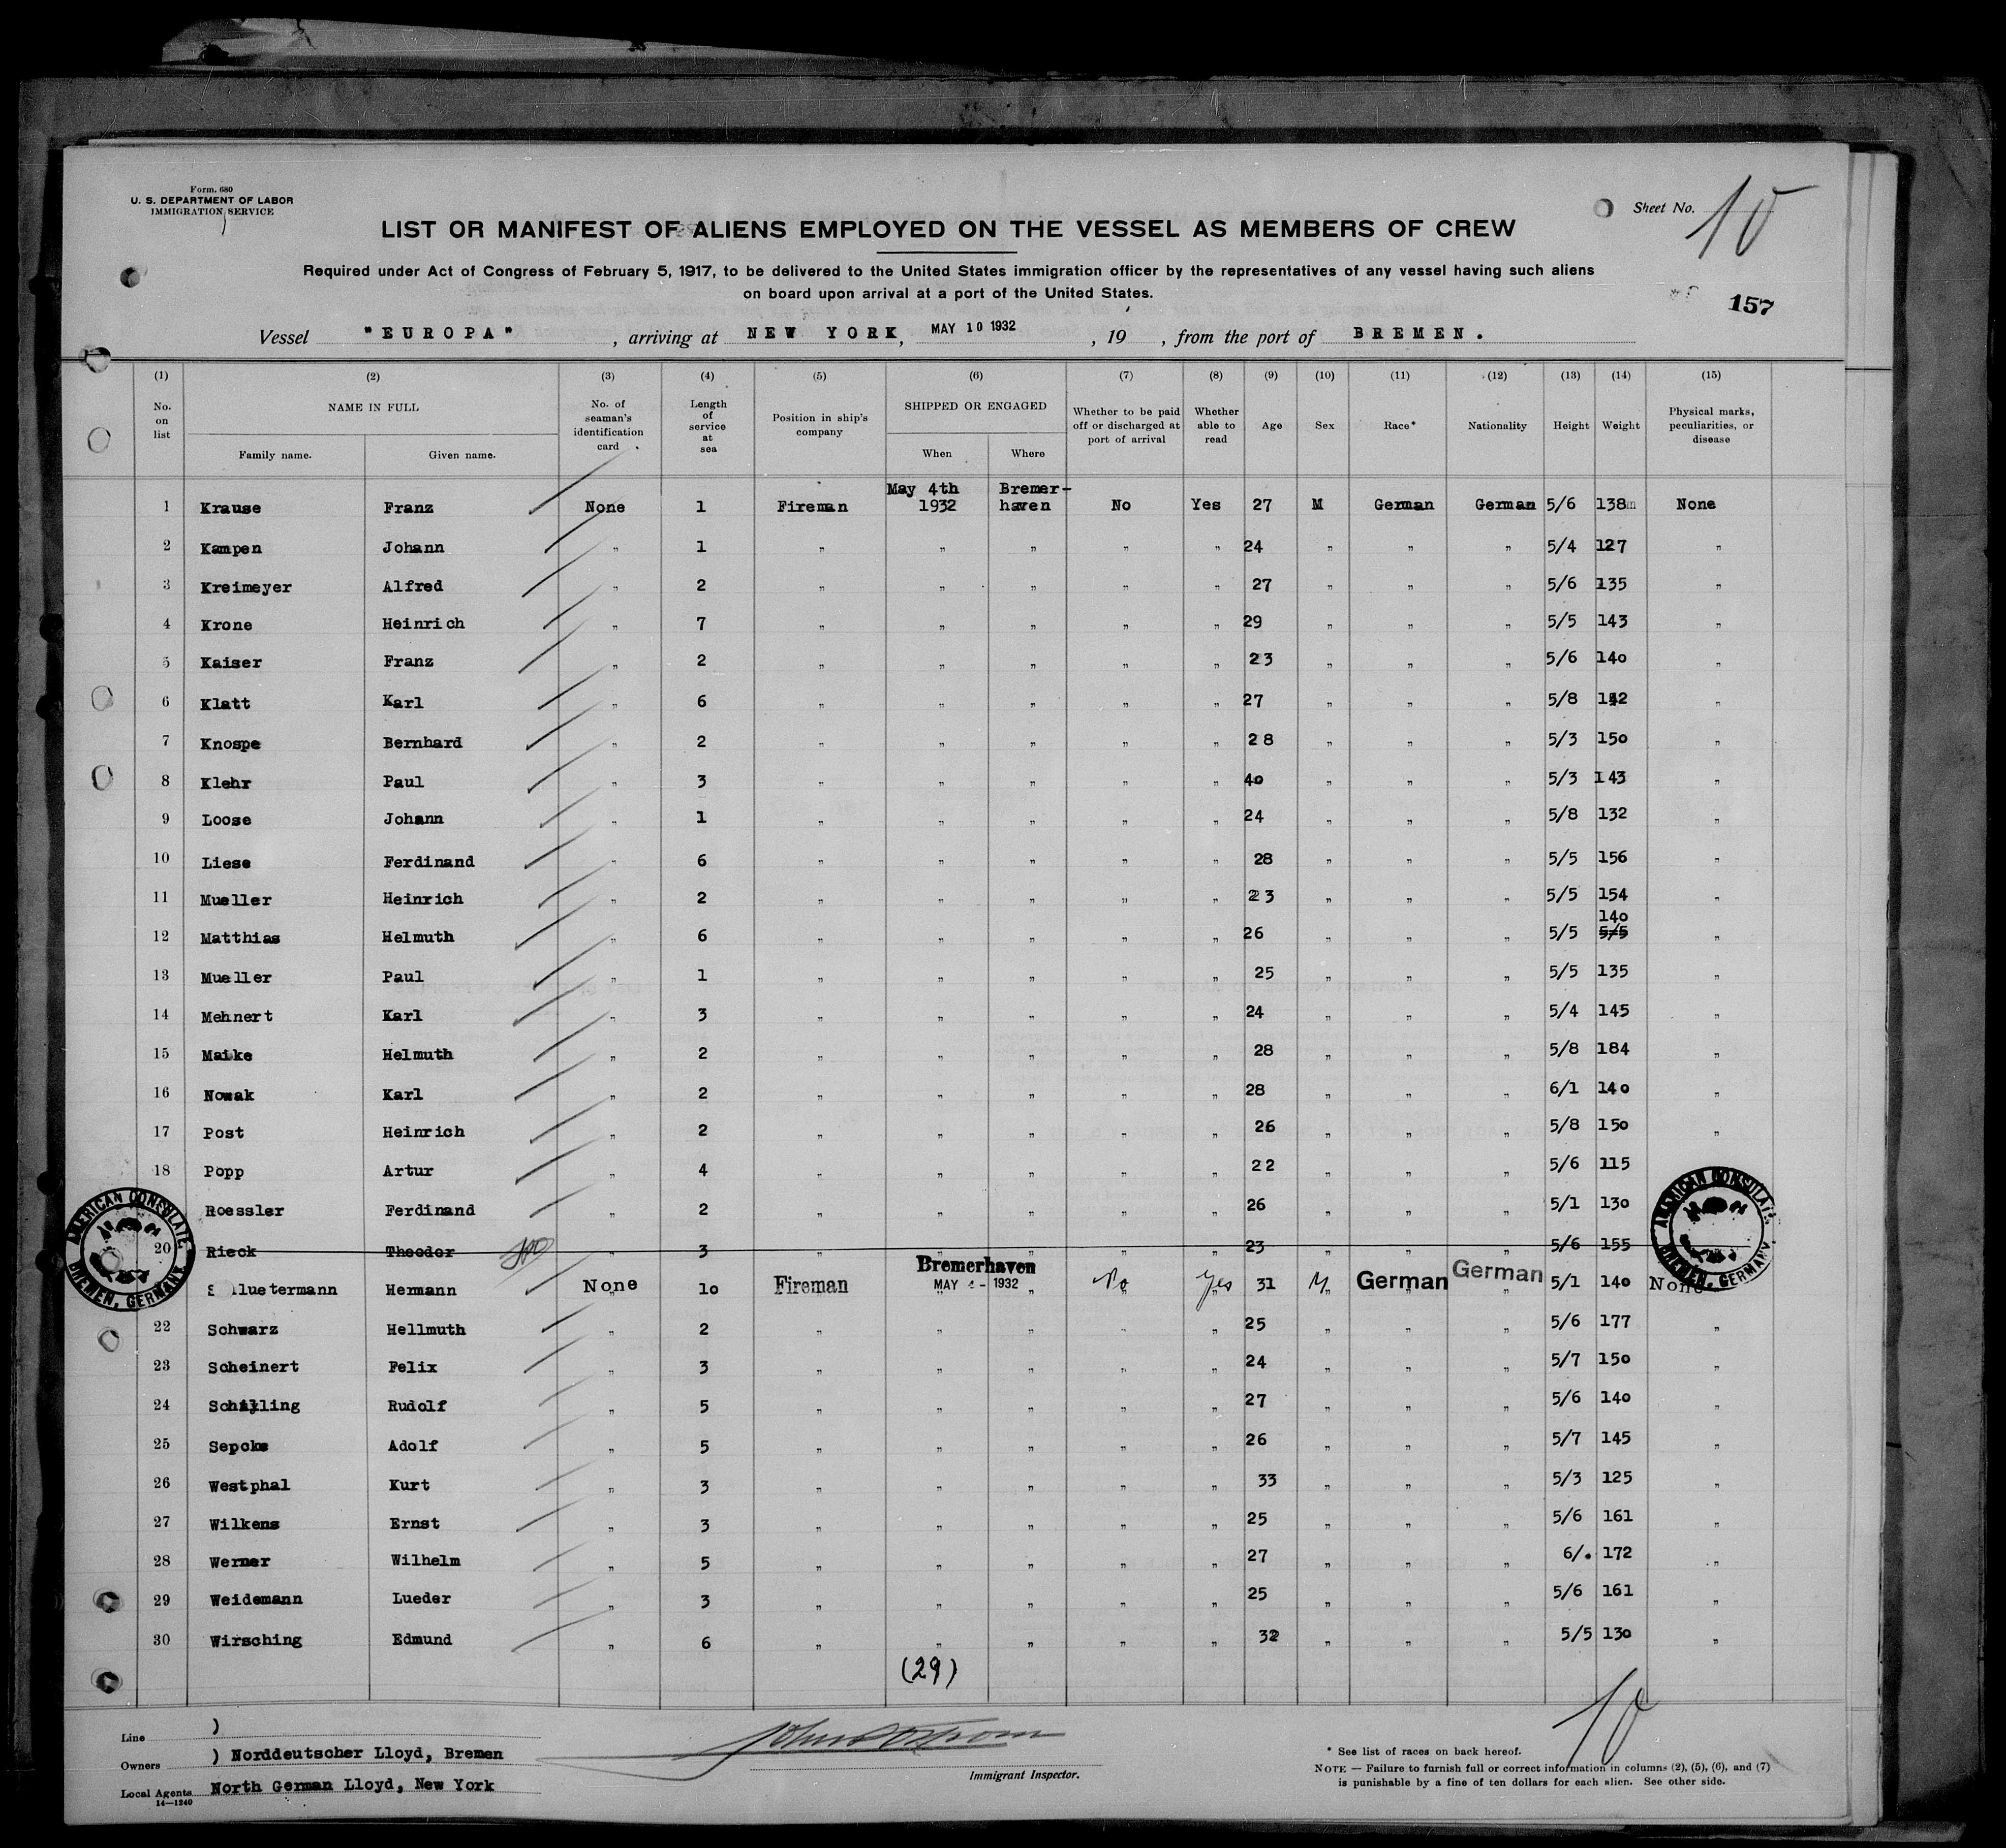 Form. 680
U. S. DEPARTMENT OF LABOR
IMMIGRATION SERVICE
Sheet No. 10
LIST OR MANIFEST OF ALIENS EMPLOYED ON THE VESSEL AS MEMBERS OF CREW
Required under Act of Congress of February 5, 1917, to be delivered to the United States immigration officer by the representatives of any vessel having such aliens
on board upon arrival at a port of the United States.
157
Vessel "EUROPA" , arriving at NEW YORK, MAY 10 1932 , 19 , from the port of BREMEN.
(1) (2) (3) (4) (5) (6) (7) (8) (9) (10) (11) (12) (13) (14) (15)
No. on list NAME IN FULL Family name. Given name. No. of seaman's identification card Length of service at sea Position in ship's company SHIPPED OR ENGAGED When Where Whether to be paid off or discharged at port of arrival Whether able to read Age Sex Race* Nationality Height Weight Physical marks, peculiarities, or disease
1 Krause Franz None 1 Fireman May 4th 1932 Bremer-haven No Yes 27 M German German 5/6 138 None
2 Kampen Johann " 1 " " " " " 24 " " " 5/4 127 "
3 Kreimeyer Alfred " 2 " " " " " 27 " " " 5/6 135 "
4 Krone Heinrich " 7 " " " " " 29 " " " 5/5 143 "
5 Kaiser Franz " 2 " " " " " 23 " " " 5/6 140 "
6 Klatt Karl " 6 " " " " " 27 " " " 5/8 "
7 Knospe Bernhard " 2 " " " " " 28 " " " 5/3 150 "
8 Klehr Paul " 3 " " " " " 40 " " " 5/3 143 "
9 Loose Johann " 1 " " " " " 24 " " " 5/8 132 "
10 Liese Ferdinand " 6 " " " " " 28 " " " 5/5 156 "
11 Mueller Heinrich " 2 " " " " " 23 " " " 5/5 154 "
12 Matthias Helmuth " 6 " " " " " 26 " " " 5/5 140 5/5 "
13 Mueller Paul " 1 " " " " " 25 " " " 5/5 135 "
14 Mehnert Karl " 3 " " " " " 24 " " " 5/4 145 "
15 Maike Helmuth " 2 " " " " " 28 " " " 5/8 184 "
16 Nowak Karl " 2 " " " " " 28 " " " 6/1 140 "
17 Post Heinrich " 2 " " " " " 26 " " " 5/8 150 "
18 Popp Artur " 4 " " " " " 22 " " " 5/6 115 "
Roessler Ferdinand " 2 " " " " " 26 " " " 5/1 130
20 Rieck Theodor " 3 " " " " " 23 " " " 5/6 155
luetermann Hermann None 10 Fireman Bremerhaven MAY 4 - 1932 " No Yes 31 M German German 5/1 140 None
22 Schwarz Hellmuth " 2 " " " " " 25 " " " 5/6 177 "
23 Scheinert Felix " 3 " " " " " 24 " " " 5/7 150 "
24 Schilling Rudolf " 5 " " " " " 27 " " " 5/6 140 "
25 Sepcke Adolf " 5 " " " " " 26 " " " 5/7 145 "
26 Westphal Kurt " 3 " " " " " 33 " " " 5/3 125 "
27 Wilkens Ernst " 3 " " " " " 25 " " " 5/6 161 "
28 Werner Wilhelm " 5 " " " " " 27 " " " 6/. 172 "
29 Weidemann Lueder " 3 " " " " " 25 " " " 5/6 161 "
30 Wirsching Edmund " 6 " " " " " 32 " " " 5/5 130 "
AMERICAN CONSULATE BREMEN, GERMANY.
AMERICAN CONSULATE BREMEN, GERMANY.
(29)
10
Line )
Owners ) Norddeutscher Lloyd, Bremen
Local Agents North German Lloyd, New York
14—1240
Immigrant Inspector.
* See list of races on back hereof.
NOTE — Failure to furnish full or correct information in columns (2), (5), (6), and (7)
is punishable by a fine of ten dollars for each alien. See other side.